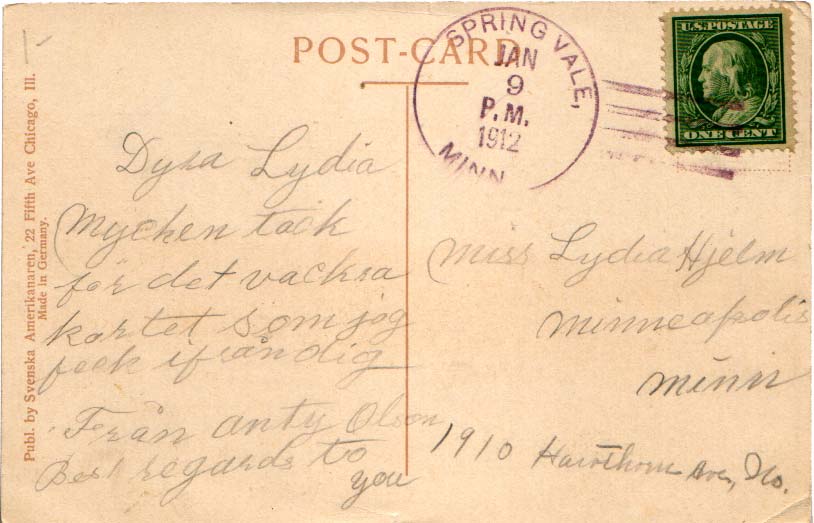 1-
POST-CARD
SPRING VALE,
JAN
9
P.M.
1912
MINN
U.S. POSTAGE
ONE CENT
Publ. by Svenska Amerikanaren, 22 Fifth Ave Chicago, Ill.
Made in Germany.
Dyra Lydia
Mycken tack
för det vackra
kortet som jog
feck ifrån dig
Från anty Olson
Best regards to
you
Miss Lydia Hjelm
Minneapolis
Minn
1910 Hawthorn Ave, No.